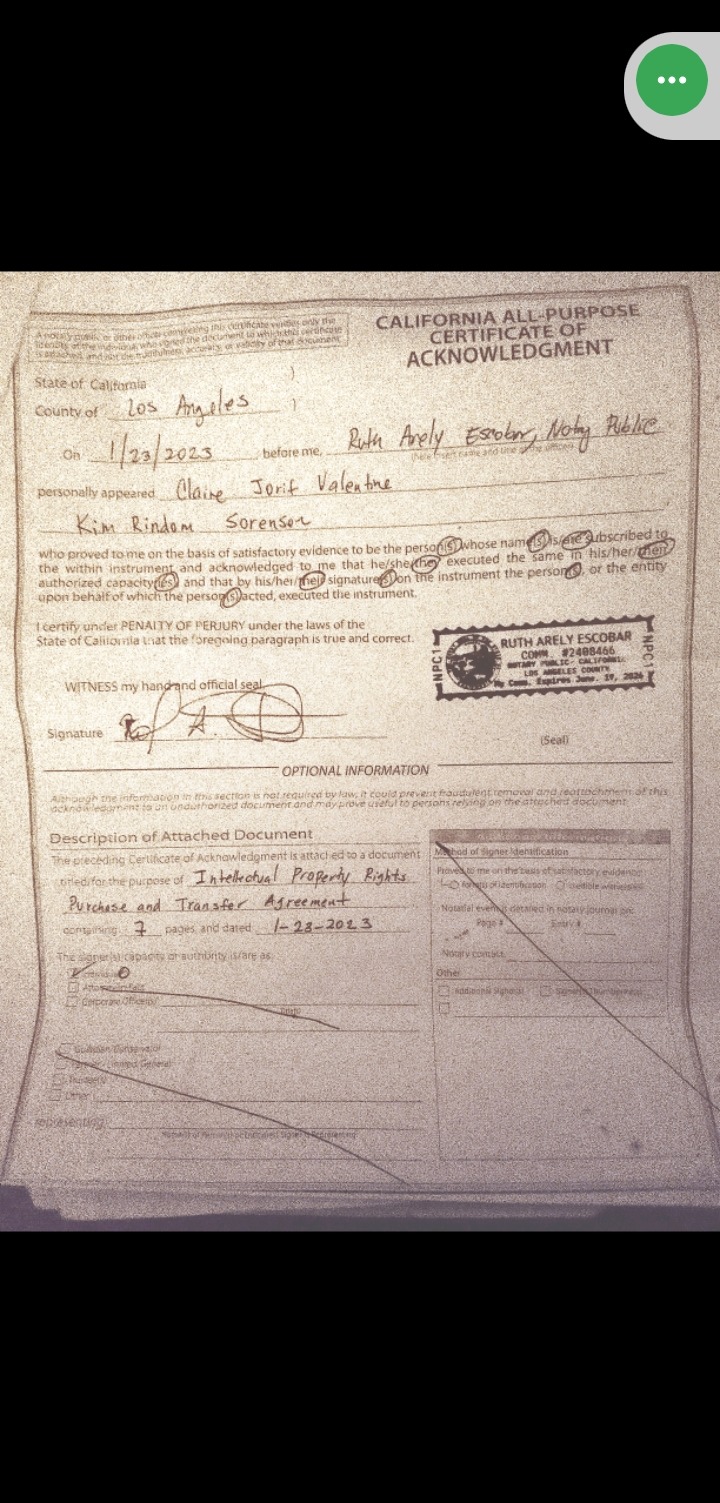 A notary public or other officer completing this certificate verifies only the
identity of the individual who signed the document to which this certificate
is attached, and not the truthfulness, accuracy, or validity of that document.
CALIFORNIA ALL-PURPOSE
CERTIFICATE OF
ACKNOWLEDGMENT
State of California )
County of Los Angeles )
On 1/23/2023 before me, Ruth Arely Escobar, Notary Public
(here insert name and title of the officer)
personally appeared Claire Jorif Valentine
Kim Rindom Sorensen
who proved to me on the basis of satisfactory evidence to be the person(s) whose name(s) is/are subscribed to
the within instrument and acknowledged to me that he/she/they executed the same in his/her/their
authorized capacity(ies) and that by his/her/their signature(s) on the instrument the person(s), or the entity
upon behalf of which the person(s) acted, executed the instrument.
I certify under PENALTY OF PERJURY under the laws of the
State of California that the foregoing paragraph is true and correct.
RUTH ARELY ESCOBAR
COMM. #2408466
NOTARY PUBLIC- CALIFORNIA
LOS ANGELES COUNTY
My Comm. Expires June. 19, 2026
NPC1
NPC1
WITNESS my hand and official seal
Signature
(Seal)
OPTIONAL INFORMATION
Although the information in this section is not required by law, it could prevent fraudulent removal and reattachment of this
acknowledgment to an unauthorized document and may prove useful to persons relying on the attached document.
Description of Attached Document
The preceding Certificate of Acknowledgment is attached to a document
titled/for the purpose of Intellectual Property Rights
Purchase and Transfer Agreement
containing 7 pages, and dated 1-23-2023
The signer(s) capacity or authority is/are as:
Individual(s)
Attorney-in-fact
Corporate Officer(s)
Title(s)
Guardian/Conservator
Partner - Limited/General
Trustee(s)
Other:
representing:
Name(s) of Person(s) or Entity(ies) Signer is Representing
Method of Signer Identification
Proved to me on the basis of satisfactory evidence:
form(s) of identification credible witness(es)
Notarial event is detailed in notary journal on:
Page # Entry #
Notary contact:
Other
Additional Signer(s) Signer(s) Thumbprint(s)